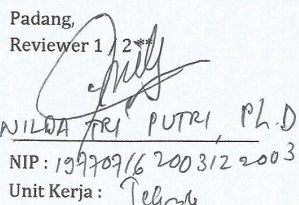 Padang,
Reviewer 1 / 2 **
NILDA TRI PUTRI, Ph.D
NIP : 19770716 200312 2003
Unit Kerja : Teknik